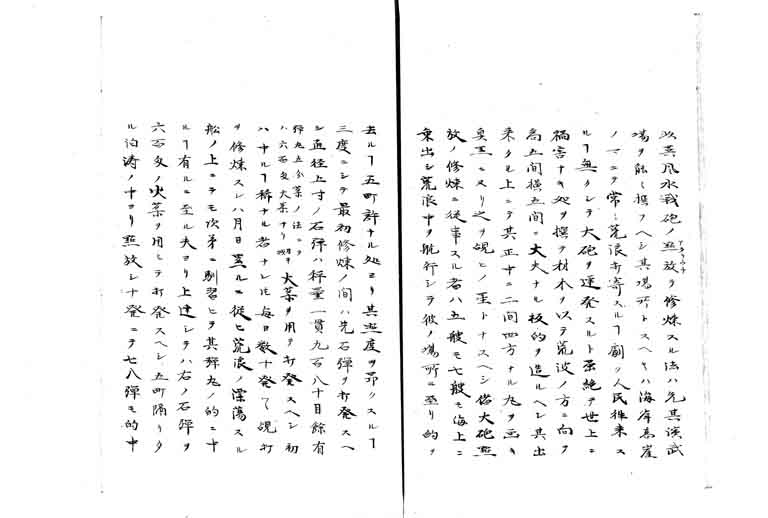 以其風水戦砲ノ点放ヲ修煉スル法ハ先其演武
場ヲ能ク撰フヘシ其場所トスヘキハ海岸高崖
ノ下ニテ常ニ荒浪打寄スルヿ劇ク人民往来ス
ルヿ無クシテ大砲ヲ連発スルト雖絶テ世上ニ
禍害ナキ処ヲ撰テ材木ヲ以テ荒波ノ方ニ向ケ
高五間横五間ニ大ナル板的ヲ造ルヘシ其出
来タル上ニテ其正中ニ二間四方ナル丸ヲ画キ
之ヲ覘ヒノ トナスヘシ 大砲点
放ノ修煉ニ従事スル者ハ五艘モ七艘モ海上ニ
乗出シ荒浪中ヲ航行シテ彼ノ場所ニ至リ的ヲ
去ルヿ五町許ナル処ヨリ其点度ヲ昂クスルヿ
三度ニシテ最初修煉ノ間ハ先石弾ヲ打発スヘ
シ直径七寸ノ石弾ハ秤量一貫九百八十目餘有
弾丸五分薬ノ法ニテ
ハ六百目大薬ナリ 大薬ヲ用ヲ打発スヘシ初
ハ中ルヿ稀ナル者ナレ𪜈毎日数十発ツヽ覘打
ヲ修煉スレハ月日重ルニ従ヒ荒浪ノ漂蕩スル
船ノ上ニテモ次第ニ馴習ヒテ其弾丸ノ的ニ中
ルヿ有ルニ至ル夫ヨリ上達シテハ右ノ石弾ヲ
六百目ノ火薬ヲ用ヒテ打発スヘシ五町隔リタ
ル泊濤ノ中ヨリ点放シ十発ニテ七八弾モ的中